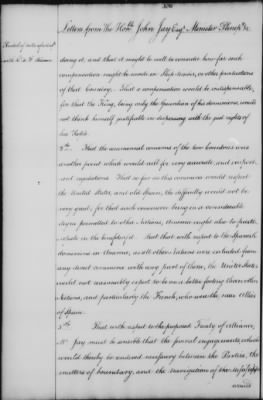 Letters from The Honble John Jay Esqr Minister Plenpy &c
doing it, and that it might be well to consider how far such
compensation might be made in Ship Stores, or other productions
of that Country. That a compensation would be indispensable,
for that the King, being only the Guardian of his dominions, would not
think himself justifiable in dispensing with the just rights of
his
2d That the commercial concerns of the two Countries was
another point which would call for very accurate, and
regulations. That so far as this commerce would respect
the United States, and old Spain, the difficulty would not be
very great, for that such commerce being in a considerable
degree permitted to other Nations, America might also be
in the benefits of it. But that with respect to the Spanish
dominions in America, as all other Nations were excluded from
any direct commerce with any part of them, the United States
could not reasonably expect to be on a better footing than other
Nations, and particularly the French, who were the near allies
of Spain.
3d That with respect to the proposed Treaty of Alliance,
Mr Jay must be sensible that the several engagements, which
would thereby be rendered necessary between the Parties, the
matters of boundary, and the navigation of the